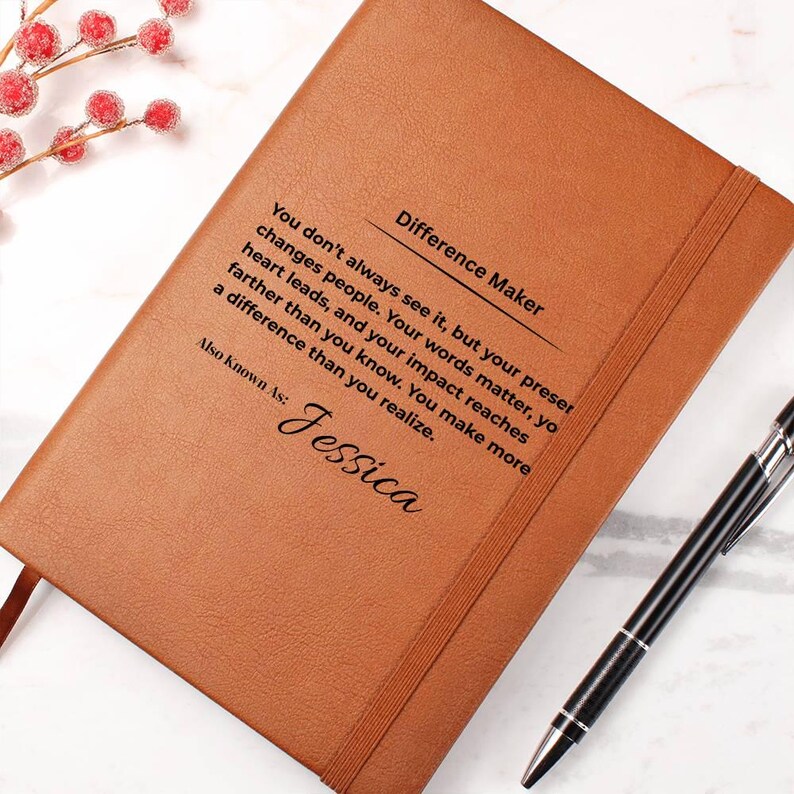 Difference Maker
You don't always see it, but your presen
changes people. Your words matter, yo
heart leads, and your impact reaches
farther than you know. You make more
a difference than you realize.
Also Known As:
Jessica